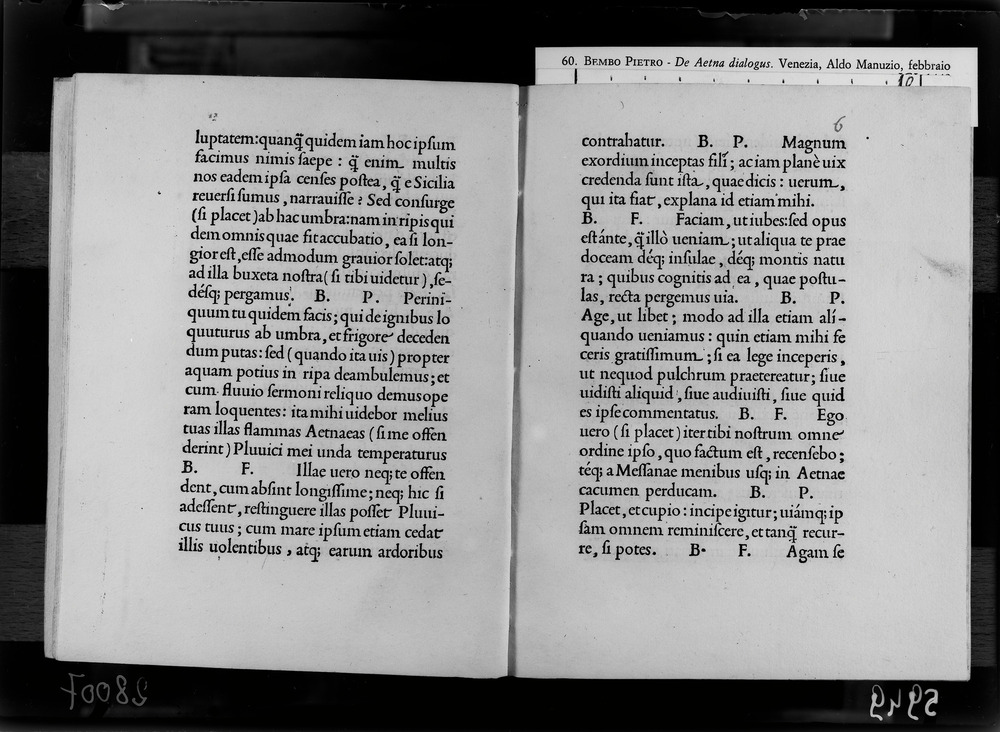 60. BEMBO PIETRO - De Aetna dialogus. Venezia, Aldo Manuzio, febbraio
luptatem:quanq̃ quidem iam hoc ipſum
facimus nimis ſaepe : q̃ enim multis
nos eadem ipſa cenſes poſtea, q̃ e Sicilia
reuerſi ſumus, narrauiſſe ? Sed conſurge
(ſi placet)ab hac umbra:nam in ripis qui
dem omnis quae fit accubatio, ea ſi lon-
gior eſt, eſſe admodum grauior ſolet:atq;
ad illa buxeta noſtra(ſi tibi uidetur), ſe-
déſq; pergamus. B. P. Perini-
quum tu quidem facis; qui de ignibus lo
quuturus ab umbra, et frigore deceden
dum putas: ſed (quando ita uis) propter
aquam potius in ripa deambulemus; et
cum fluuio ſermoni reliquo demus ope
ram loquentes: ita mihi uidebor melius
tuas illas flammas Aetnaeas (ſi me offen
derint) Pluuici mei unda temperaturus
B. F. Illae uero neq; te offen
dent, cum abſint longiſſime; neq; hic ſi
adeſſent, reſtinguere illas poſſet Pluui-
cus tuus; cum mare ipſum etiam cedat
illis uolentibus, atq; earum ardoribus
6
contrahatur. B. P. Magnum
exordium inceptas fili; ac iam planè uix
credenda ſunt iſta, quae dicis: uerum,
qui ita fiat, explana id etiam mihi.
B. F. Faciam, ut iubes:ſed opus
eſt ánte, q̃ illò ueniam; ut aliqua te prae
doceam déq; inſulae, déq; montis natu
ra; quibus cognitis ad ea, quae poſtu-
las, recta pergemus uia. B. P.
Age, ut libet; modo ad illa etiam alí-
quando ueniamus: quin etiam mihi fe
ceris gratiſſimum; ſi ea lege inceperis,
ut nequod pulchrum praetereatur; ſiue
uidiſti aliquid, ſiue audiuiſti, ſiue quid
es ipſe commentatus. B. F. Ego
uero (ſi placet) iter tibi noſtrum omne
ordine ipſo, quo factum eſt, recenſebo;
téq; a Meſſanae menibus uſq; in Aetnae
cacumen perducam. B. P.
Placet, et cupio: incipe igitur; uiámq; ip
ſam omnem reminiſcere, et tanq̃ recur-
re, ſi potes. B. F. Agam ſe
28007
5949